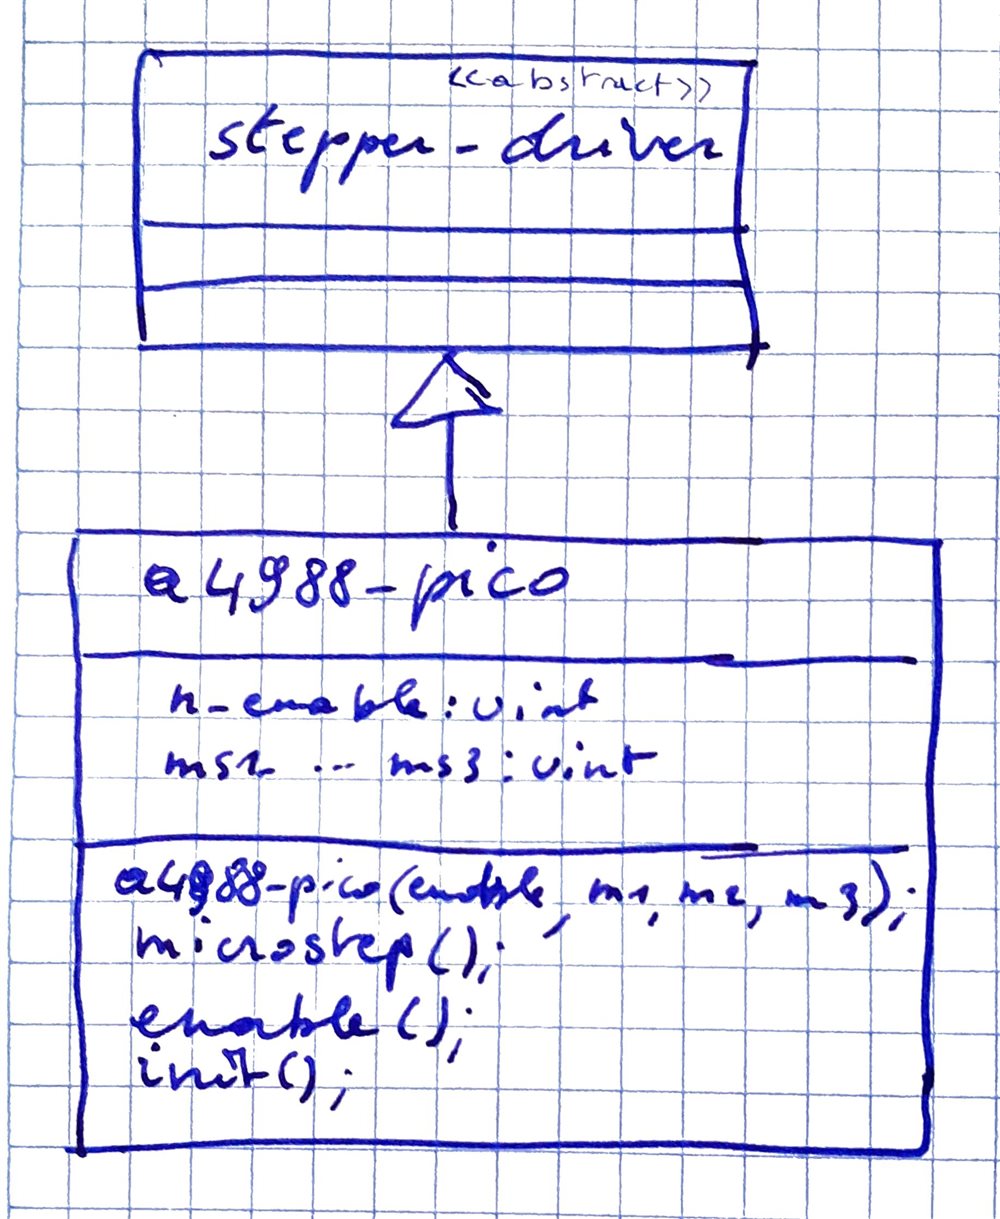 <<abstract>>
stepper-driver
a4988-pico
n-enable:uint
ms1 ... ms3:uint
a4988-pico(enable, m1, m2, m3);
microstep();
enable();
init();